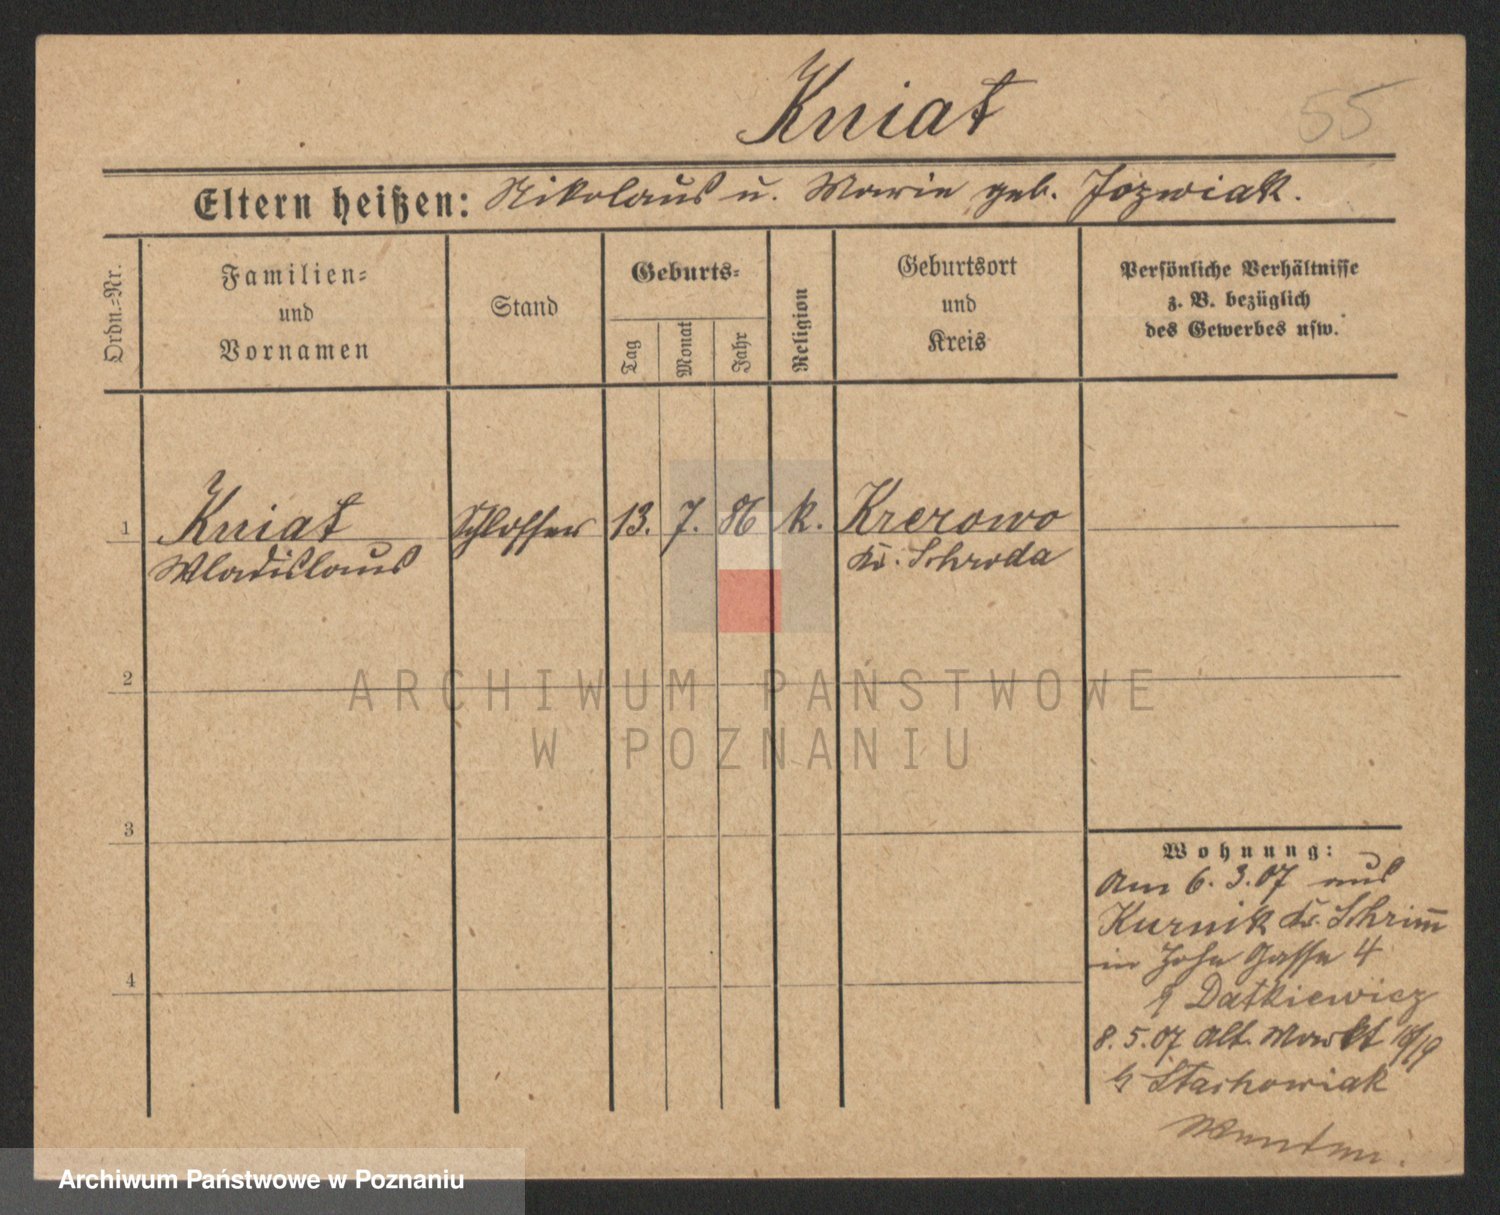 Kniat
55
Eltern heißen: Nikolaus u. Marie geb. Jozwiak.
Ordn.=Nr.
Familien=
und
Vornamen
Stand
Geburts=
Tag
Monat
Jahr
Religion
Geburtsort
und
Kreis
Persönliche Verhältnisse
z. B. bezüglich
des Gewerbes usw.
1
Kniat
Wladislaus
Schlosser
13. 7. 86
k.
Krerowo
Kr. Schroda
2
ARCHIWUM PAŃSTWOWE
W POZNANIU
3
4
Wohnung:
Am 6. 3. 07 aus
Kurnik Kr. Schrim̄
in Gasse 4
Datkiewicz
8. 5. 07 Alt. Markt 18/19
b Stachowiak
Archiwum Państwowe w Poznaniu